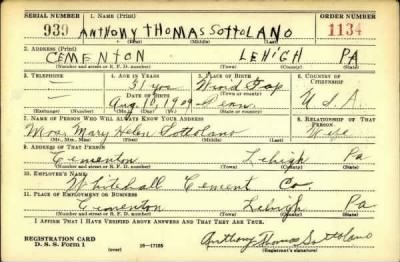 SERIAL NUMBER 1. NAME (Print) ORDER NUMBER
939 ANTHONY THOMAS SOTTOLANO 1134
(First) (Middle) (Last)
2. ADDRESS (Print)
CEMENTON LEHIGH PA
(Number and street or R. F. D. number) (Town) (County) (State)
3. TELEPHONE 4. AGE IN YEARS 5. PLACE OF BIRTH 6. COUNTRY OF CITIZENSHIP
31 yrs Wind Gap
DATE OF BIRTH (Town or county)
Aug 10, 1909 Penn. U.S.A.
(Exchange) (Number) (Mo.) (Day) (Yr.) (State or country)
7. NAME OF PERSON WHO WILL ALWAYS KNOW YOUR ADDRESS 8. RELATIONSHIP OF THAT PERSON
Mrs. Mary Helen Sottolano Wife
(Mr., Mrs., Miss) (First) (Middle) (Last)
9. ADDRESS OF THAT PERSON
Cementon Lehigh Pa
(Number and street or R. F. D. number) (Town) (County) (State)
10. EMPLOYER'S NAME
Whitehall Cement Co.
11. PLACE OF EMPLOYMENT OR BUSINESS
Cementon Lehigh Pa
(Number and street or R. F. D. number) (Town) (County) (State)
I AFFIRM THAT I HAVE VERIFIED ABOVE ANSWERS AND THAT THEY ARE TRUE.
REGISTRATION CARD
D. S. S. Form 1 (over) 16—17105 Anthony Thomas Sottolano
(Registrant's signature)